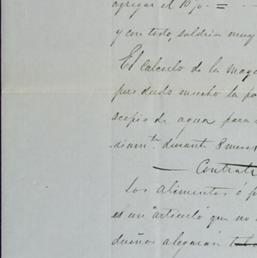 agregar el
y con todo, saldrían muy
El calculo de la
pues dudo mucho la
scopio de agua para
durante 8 meses
Contrata
Los alimentos ó
es un "articulo" que no
dueños alegarán